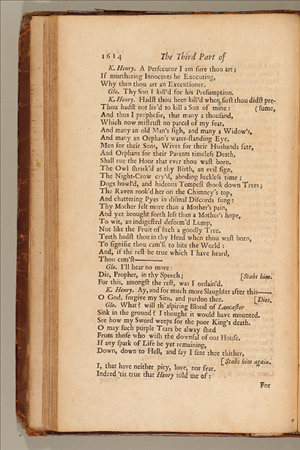 1614 The Third Part of
K. Henry. A Persecutor I am sure thou art;
If murthering Innocents be Executing,
Why then thou art an Executioner.
Glo. Thy Son I kill'd for his Presumption.
K. Henry. Hadst thou been kill'd when first thou didst pre-
Thou hadst not liv'd to kill a Son of mine: (sume,
And thus I prophesie, that many a thousand,
Which now mistrust no parcel of my fear,
And many an old Man's sigh, and many a Widow's,
And many an Orphan's water-standing Eye,
Men for their Sons, Wives for their Husbands fate,
And Orphans for their Parents timeless Death,
Shall rue the Hour that ever thou wast born.
The Owl shriek'd at thy Birth, an evil sign,
The Night-Crow cry'd, aboding luckless time;
Dogs howl'd, and hideous Tempest shook down Trees;
The Raven rook'd her on the Chimney's top,
And chattering Pyes in dismal Discords sung:
Thy Mother felt more than a Mother's pain,
And yet brought forth less than a Mother's hope,
To wit, an indigested deform'd Lump,
Not like the Fruit of such a goodly Tree.
Teeth hadst thou in thy Head when thou wast born,
To signifie thou cam'st to bite the World:
And, if the rest be true which I have heard,
Thou cam'st—
Glo. I'll hear no more:
Die, Prophet, in thy Speech; [Stabs him.
For this, amongst the rest, was I ordain'd.
K. Henry. Ay, and for much more Slaughter after this—
O God, forgive my Sins, and pardon thee. [Dies.
Glo. What! will th' aspiring Blood of Lancaster
Sink in the ground? I thought it would have mounted.
See how my Sword weeps for the poor King's death.
O may such purple Tears be alway shed
From those who wish the downfal of our House.
If any spark of Life be yet remaining,
Down, down to Hell, and say I sent thee thither,
[Stabs him again.
I, that have neither pity, love, nor fear.
Indeed 'tis true that Henry told me of:
For